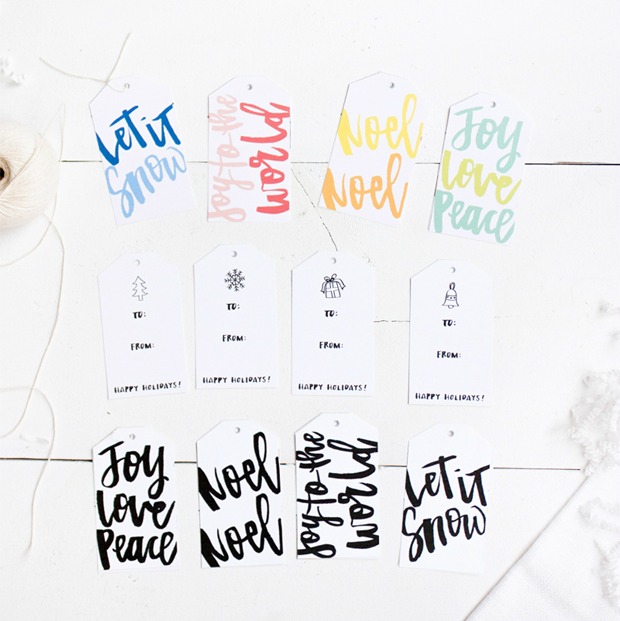 LET IT
SNOW
Joy to the
WORLD
Noel
Noel
Joy
Love
Peace
TO:
FROM:
HAPPY HOLIDAYS!
TO:
FROM:
HAPPY HOLIDAYS!
TO:
FROM:
HAPPY HOLIDAYS!
TO:
FROM:
HAPPY HOLIDAYS!
Joy
Love
Peace
Noel
Noel
Joy to the
WORLD
LET IT
SNOW